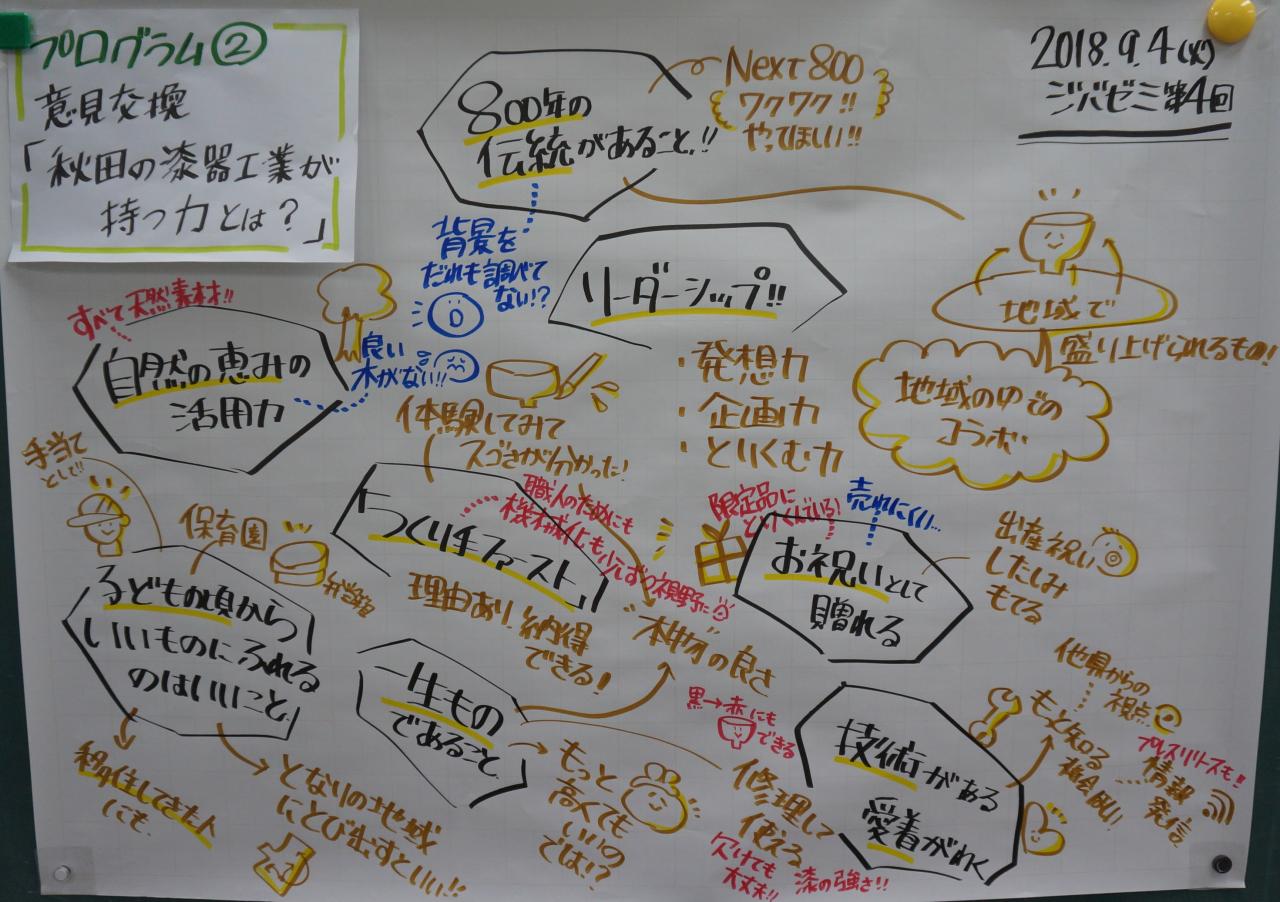 プログラム②
意見交換
「秋田の漆器工業が
持つ力とは?」
2018.9.4(火)
ジバゼミ第4回
800年の
伝統があること!!
Next 800
ワクワク!!
やってほしい!!
背景を
だれも調べて
ない!?
リーダーシップ!!
・発想力
・企画力
・とりくむ力
地域で
盛り上げられるもの!
地域の中での
コラボ
すべて天然素材!!
自然の恵みの
活用力
良い
木がない!!
体験してみて
スゴさが分かった!
「つくり手ファースト」
職人のためにも
機械化も少しずつ視野に
理由あり納得
できる!
"本物"の良さ
限定品に
とりくんでいる!
売れにくい…
お祝いとして
贈れる
出産祝い
したしみ
もてる
手当て
として!!
保育園
弁当箱
子どもの頃から
いいものにふれる
のはいいこと!
移住してきた人
にも
となりの地域
にとび出すといい!!
一生もの
であること
もっと
高くても
いいの
では!?
黒→赤にも
できる
修理して
使える
欠けても
大丈夫!!
漆の強さ!!
技術がある
愛着がわく
もっと知る
機会欲しい!
他県からの
視点
プレスリリースも!!
情報
発信